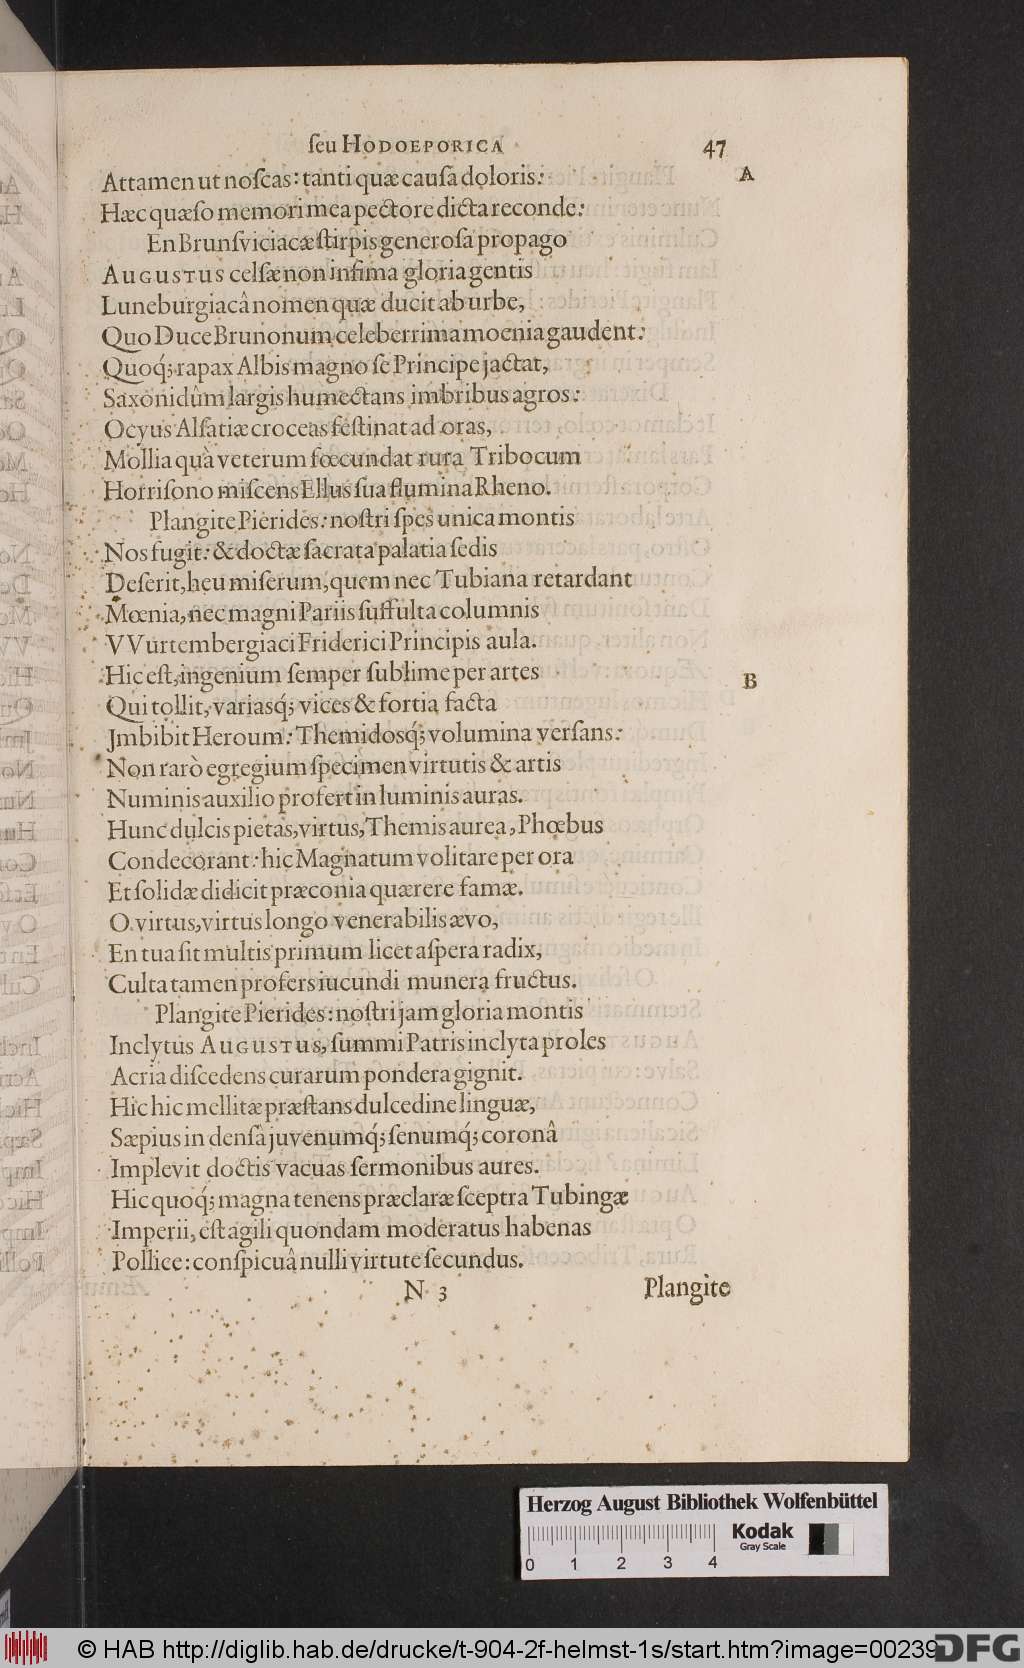 ſeu HODOEPORICA 47
Attamen ut noſcas: tanti quæ cauſa doloris: A
Hæc quæſo memori mea pectore dicta reconde:
En Brunſviciacæ ſtirpis generoſa propago
AUGUSTUS celſæ non infima gloria gentis
Luneburgiacâ nomen quæ ducit ab urbe,
Quo Duce Brunonum celeberrima mœnia gaudent:
Quoq́; rapax Albis magno ſe Principe jactat,
Saxonidûm largis humectans imbribus agros:
Ocyus Alſatiæ croceas feſtinat ad oras,
Mollia quà veterum fœcundat rura Tribocum
Horriſono miſcens Ellus ſua flumina Rheno.
Plangite Pierides: noſtri ſpes unica montis
Nos fugit: & doctæ ſacrata palatia ſedis
Deſerit, heu miſerum, quem nec Tubiana retardant
Mœnia, nec magni Pariis ſuffulta columnis
VVurtembergiaci Friderici Principis aula.
Hic eſt, ingenium ſemper ſublime per artes B
Qui tollit, variasq́; vices & fortia facta
Jmbibit Heroum: Themidosq́; volumina verſans:
Non rarò egregium ſpecimen virtutis & artis
Numinis auxilio profert in luminis auras.
Hunc dulcis pietas, virtus, Themis aurea, Phœbus
Condecorant: hic Magnatum volitare per ora
Et ſolidæ didicit præconia quærere famæ.
O virtus, virtus longo venerabilis ævo,
En tua ſit multis primum licet aſpera radix,
Culta tamen profers iucundi munera fructus.
Plangite Pierides: noſtri jam gloria montis
Inclytus AUGUSTUS, ſummi Patris inclyta proles
Acria diſcedens curarum pondera gignit.
Hic hic mellitæ præſtans dulcedine linguæ,
Sæpius in denſâ juvenumq́; ſenumq́; coronâ
Implevit doctis vacuas ſermonibus aures.
Hic quoq́; magna tenens præclaræ ſceptra Tubingæ
Imperii, eſt agili quondam moderatus habenas
Pollice: conſpicuâ nulli virtute ſecundus.
N 3 Plangite
Herzog August Bibliothek Wolfenbüttel
Kodak
Gray Scale
0 1 2 3 4
© HAB http://diglib.hab.de/drucke/t-904-2f-helmst-1s/start.htm?image=00239
DFG